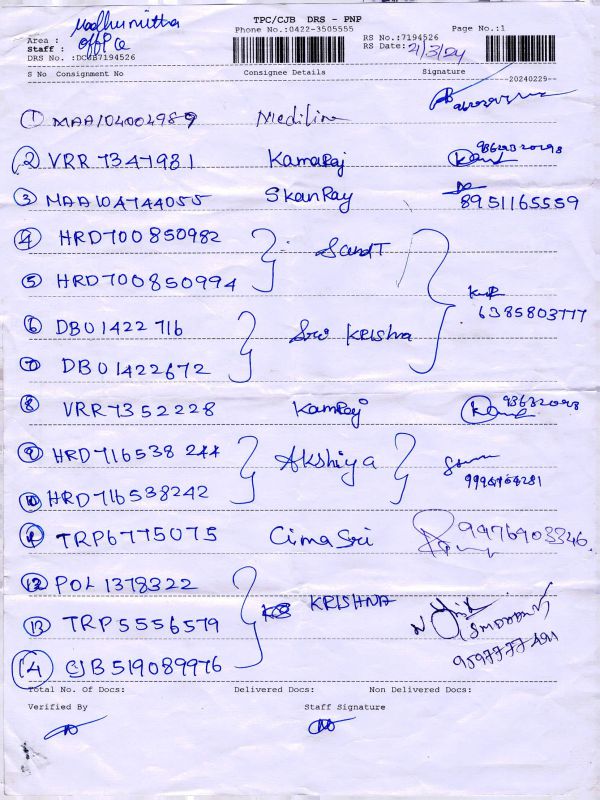 Madhumitha
Office
TPC/CJB DRS - PNP
Phone No.:0422-3505555
Page No.:1
Area :
Staff :
DRS No. :DCMB7194526
RS No.:7194526
RS Date: 2/3/24
S No Consignment No Consignee Details Signature
--20240229--
1 MAA104004989 Mediline
2 VRR7347981 Kamaraj 9363232098
3 MAA104744055 SkanRay 8951165559
4 HRD700850982
5 HRD700850994 6385803777
6 DB01422716 Krishna
7 DB01422672
8 VRR7352228 Kamraj
9 HRD716538244 Akshiya
10 HRD716538242
11 TRP6775075 Cima Sri 9976903346
12 POL1378322 KRISHNA
13 TRP5556579
14 CJB519089976 9597777491
Total No. Of Docs: Delivered Docs: Non Delivered Docs:
Verified By Staff Signature